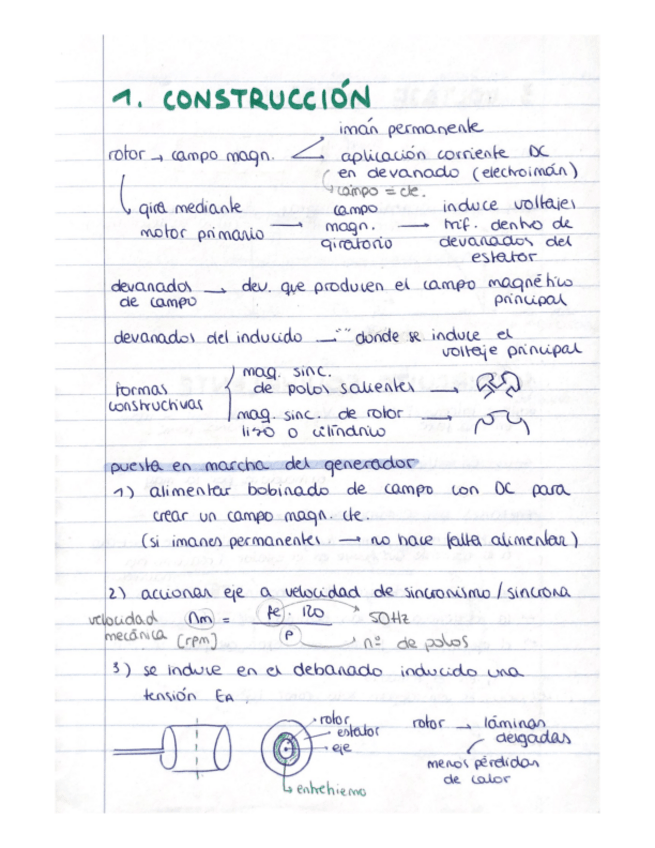 1. CONSTRUCCIÓN
imán permanente
rotor → campo magn. aplicación corriente DC
en devanado (electroimán)
campo = cte.
gira mediante motor primario → campo magn. giratorio → induce voltajes trif. dentro de devanados del estator
devanados de campo → dev. que producen el campo magnético principal
devanados del inducido → "" donde se induce el voltaje principal
formas constructivas
maq. sinc. de polos salientes →
maq. sinc. de rotor liso o cilíndrico →
puesta en marcha del generador
1) alimentar bobinado de campo con DC para
crear un campo magn. cte.
(si imanes permanentes → no hace falta alimentar)
2) accionar eje a velocidad de sincronismo / síncrona
velocidad mecánica nm [rpm] = fe · 120 / P
50Hz
nº de polos
3) se induce en el debanado inducido una
tensión EA
rotor
estator
eje
entrehierro
rotor → láminas delgadas
menos pérdidas de calor